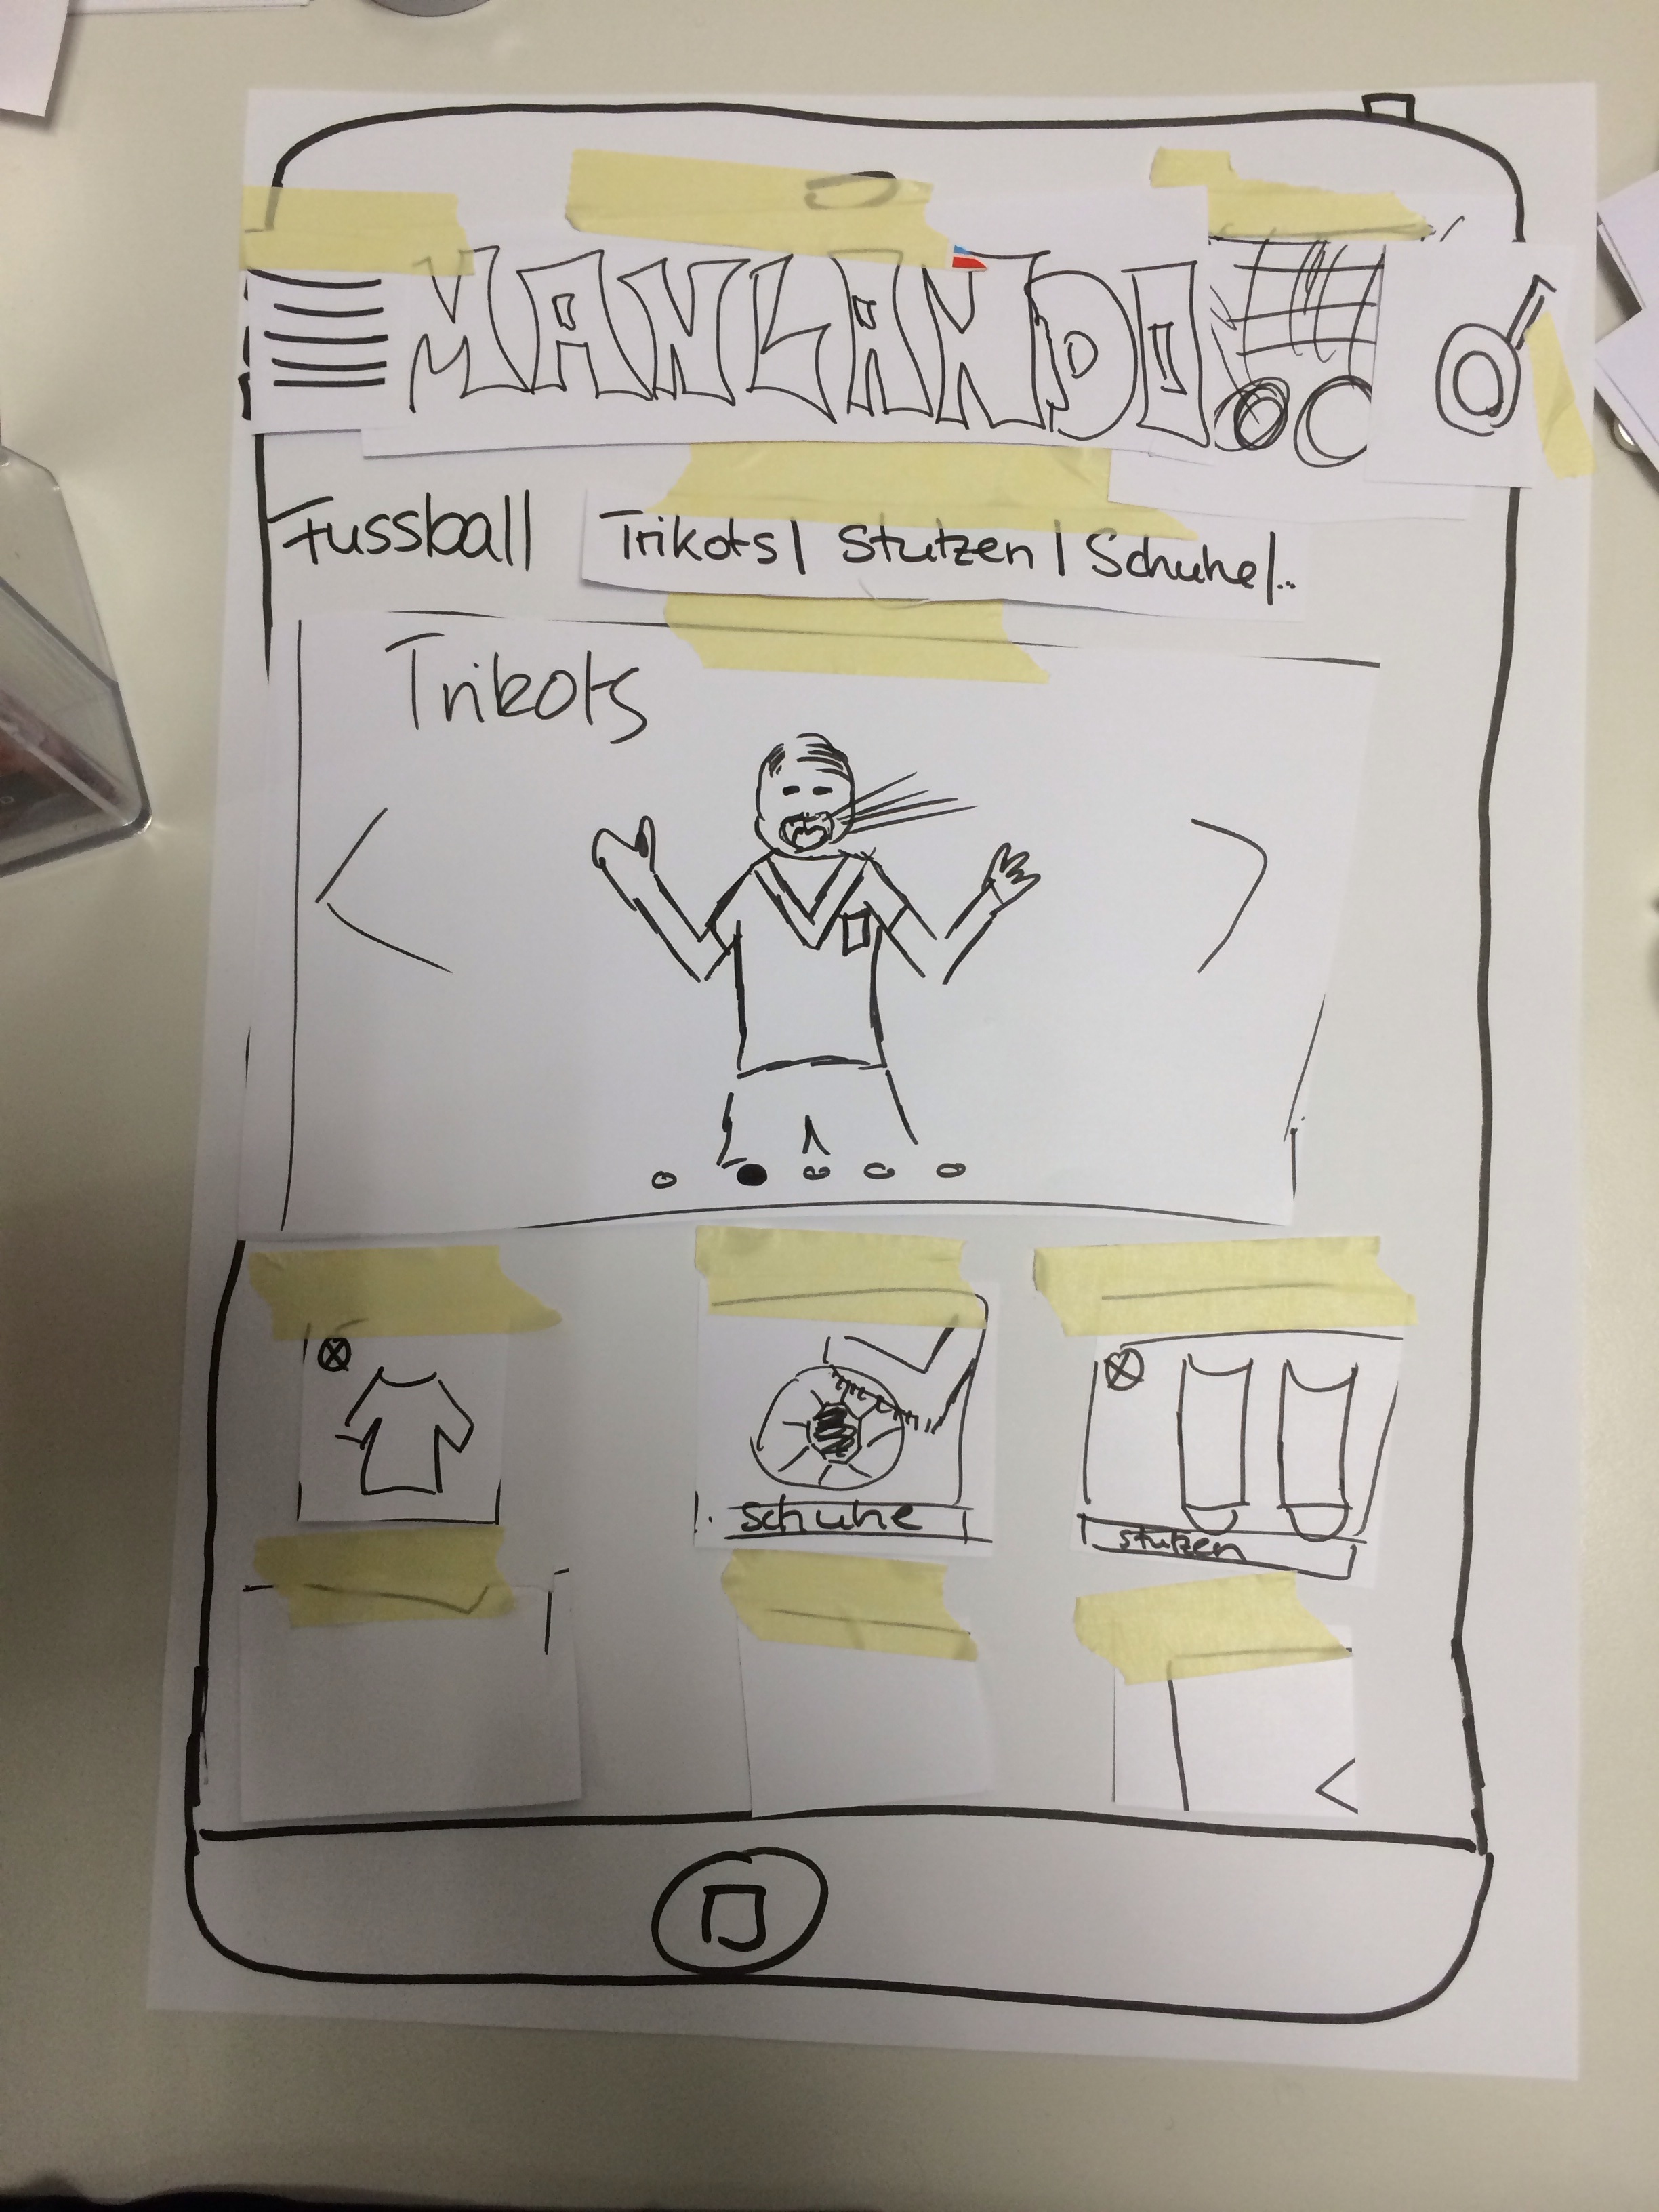 MANLANDO
Fussball Trikots | Stutzen | Schuhe |..
Trikots
schuhe
stutzen